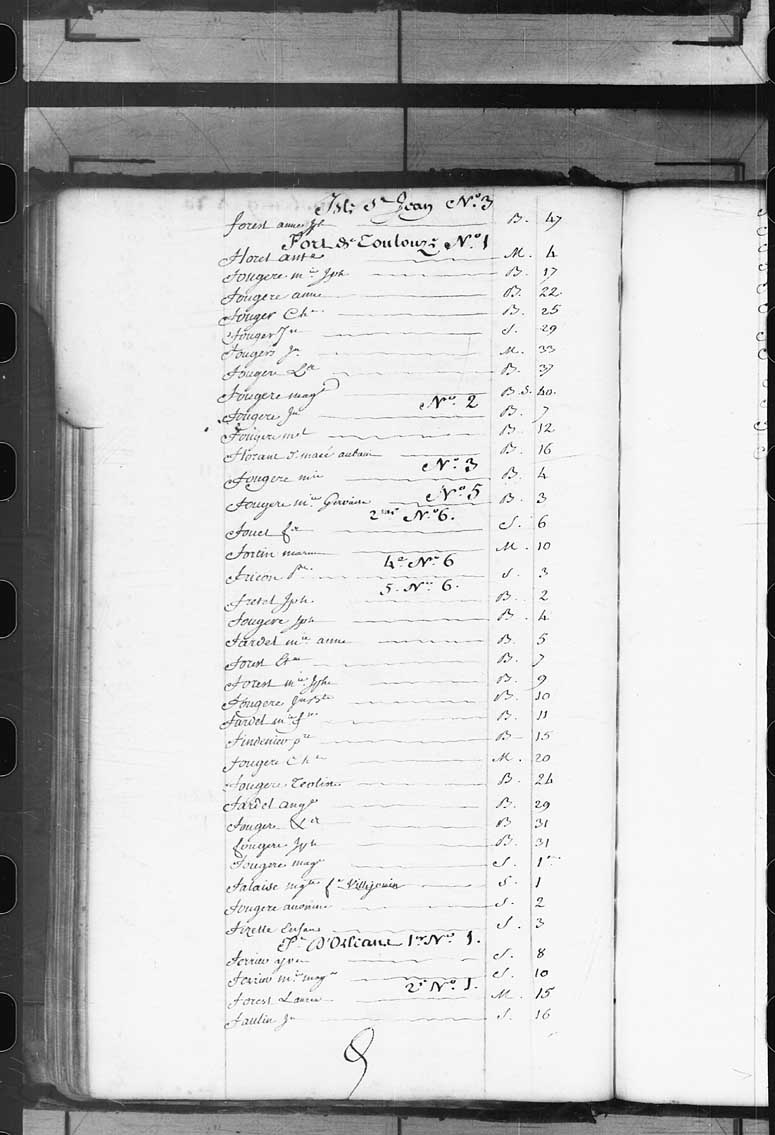 Isle St Jean No. 3
forest anne Jph B. 47
Fort de Toulouze No. 1
Floret ante M. 4
Fougere mie Jph B. 17
Fougere anne B. 22
Fouger Chs B. 25
Fouger Jn S. 29
Fougere Jn M. 33
Fougere B. 37
Fougere mag B. S. 40.
No. 2
Fougere Jn B. 7
Fougere B. 12
Florant B. 16
No. 3
Fougere mie B. 4
No. 5
Fougere mie Gervaise B. 3
2me No. 6.
Fouet S. 6
Fortin M. 10
4e No. 6
Fricon S. 3
5. No. 6.
Fretel Jph B. 2
Fougere Jph B. 4
Fardel mie anne B. 5
Forest B. 7
Forest mie Jphe B. 9
Fougere Jn Bte B. 10
Fardel mie B. 11
B 15
Fougere Chs M. 20
Fougere Teotin B. 24
Fardel ange B. 29
Fougere B 31
fougere Jph B. 31
Fougere mag S. 1er
Falaise mgte Villejouin S. 1
Fougere anonime S. 2
Fizelle Enfant S. 3
Pt D'Orleans 1er No. 1.
Ferrier yves S. 8
Ferrier S. 10
2e No. 1.
Forest M. 15
Faulin Jn S. 16